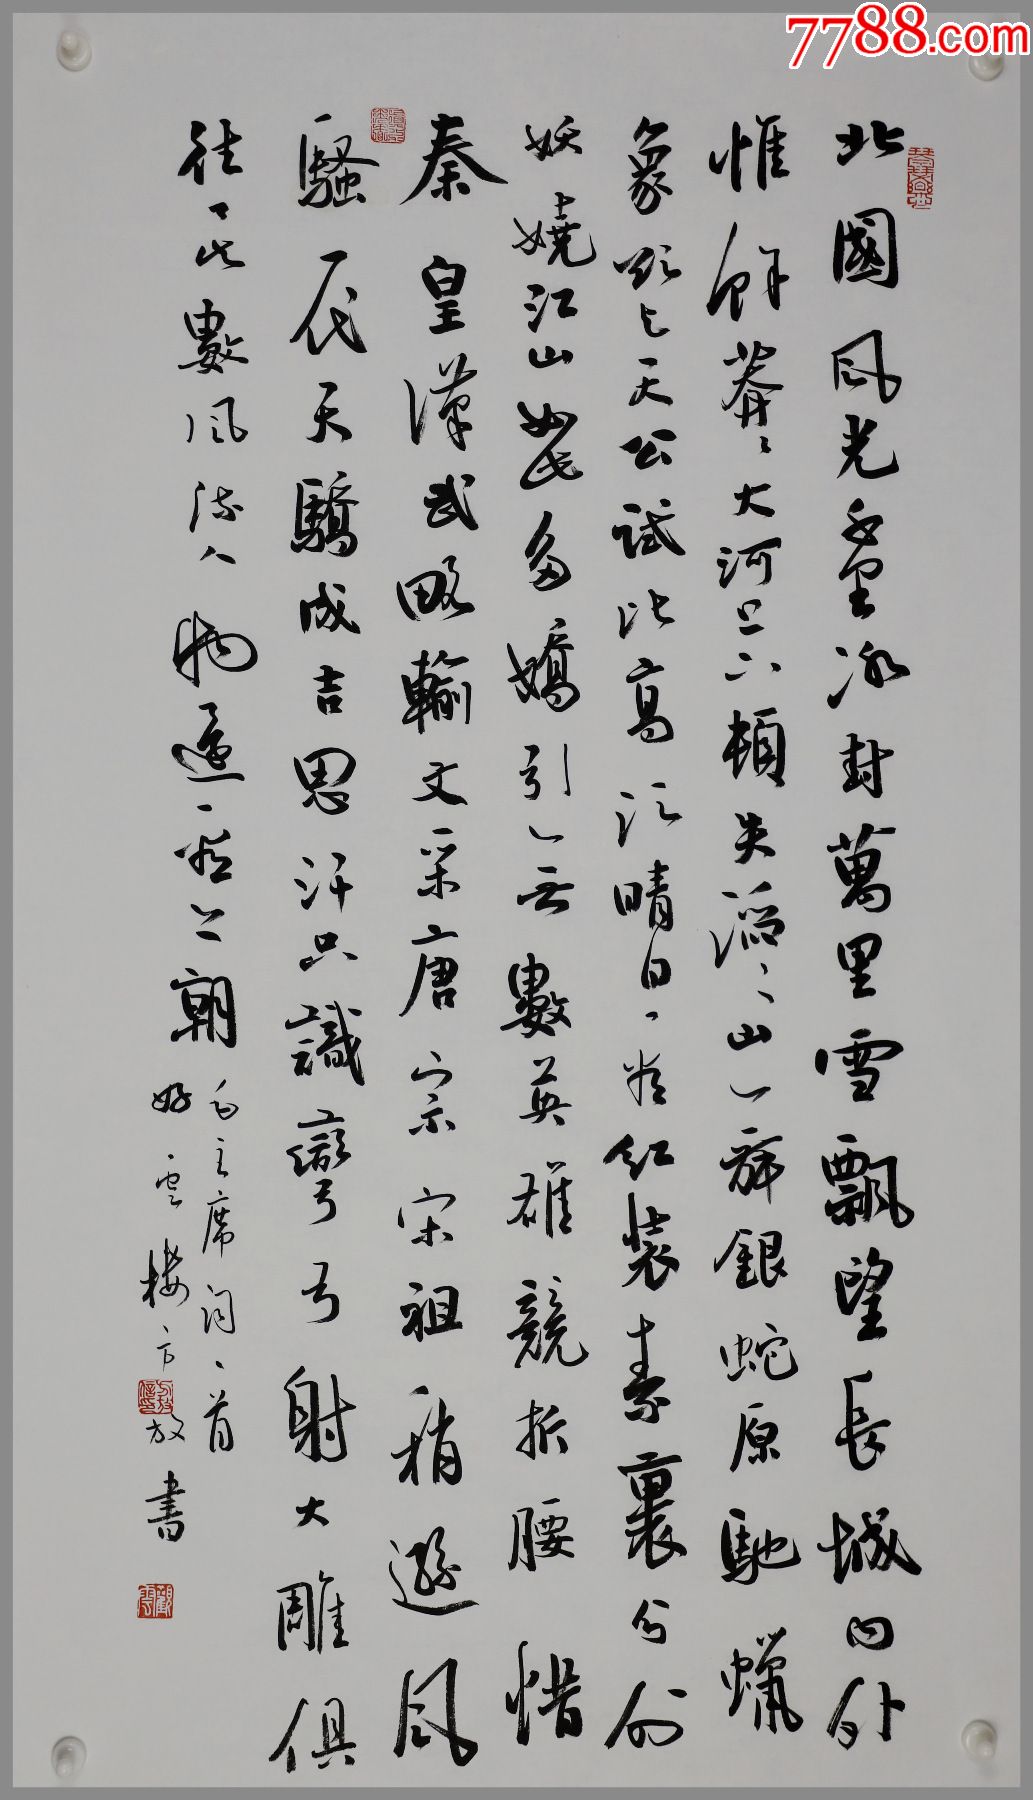 7788.com
北國風光千里冰封萬里雪飄望長城内外
惟餘莽々大河上下頓失滔々山舞銀蛇原馳蠟
象欲与天公試比高須晴日看紅裝素裹分外
妖嬈江山如此多嬌引無數英雄競折腰惜
秦皇漢武略輸文采唐宗宋祖稍遜風
騷一代天驕成吉思汗只識彎弓射大雕俱
往矣數風流人物還看今朝
毛主席詞一首
雲樓方放書